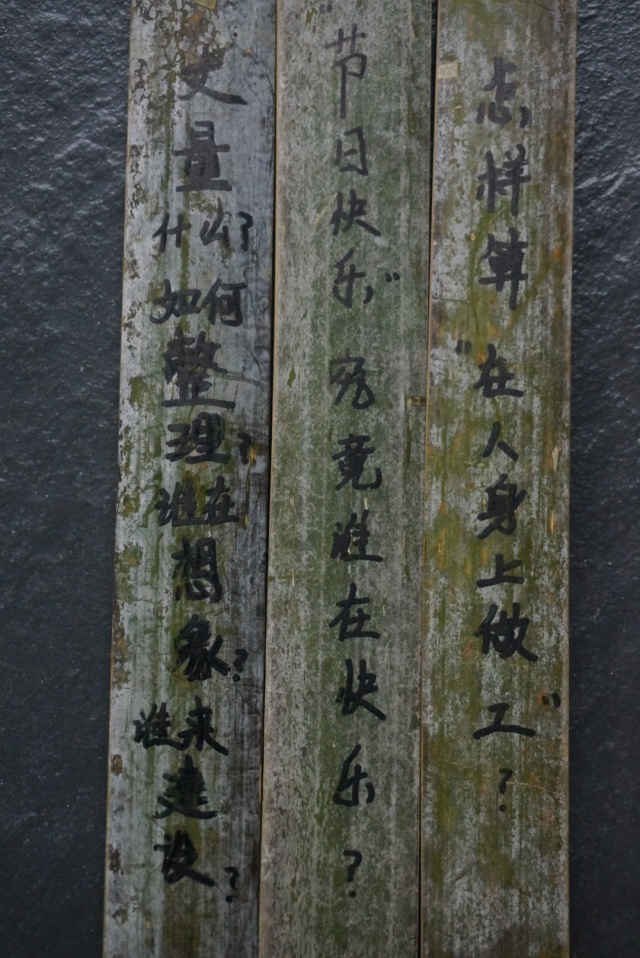 怎样算“在人身上做工”?
“节日快乐”究竟谁在快乐?
丈量什么?如何整理?谁在想象?谁来建设?